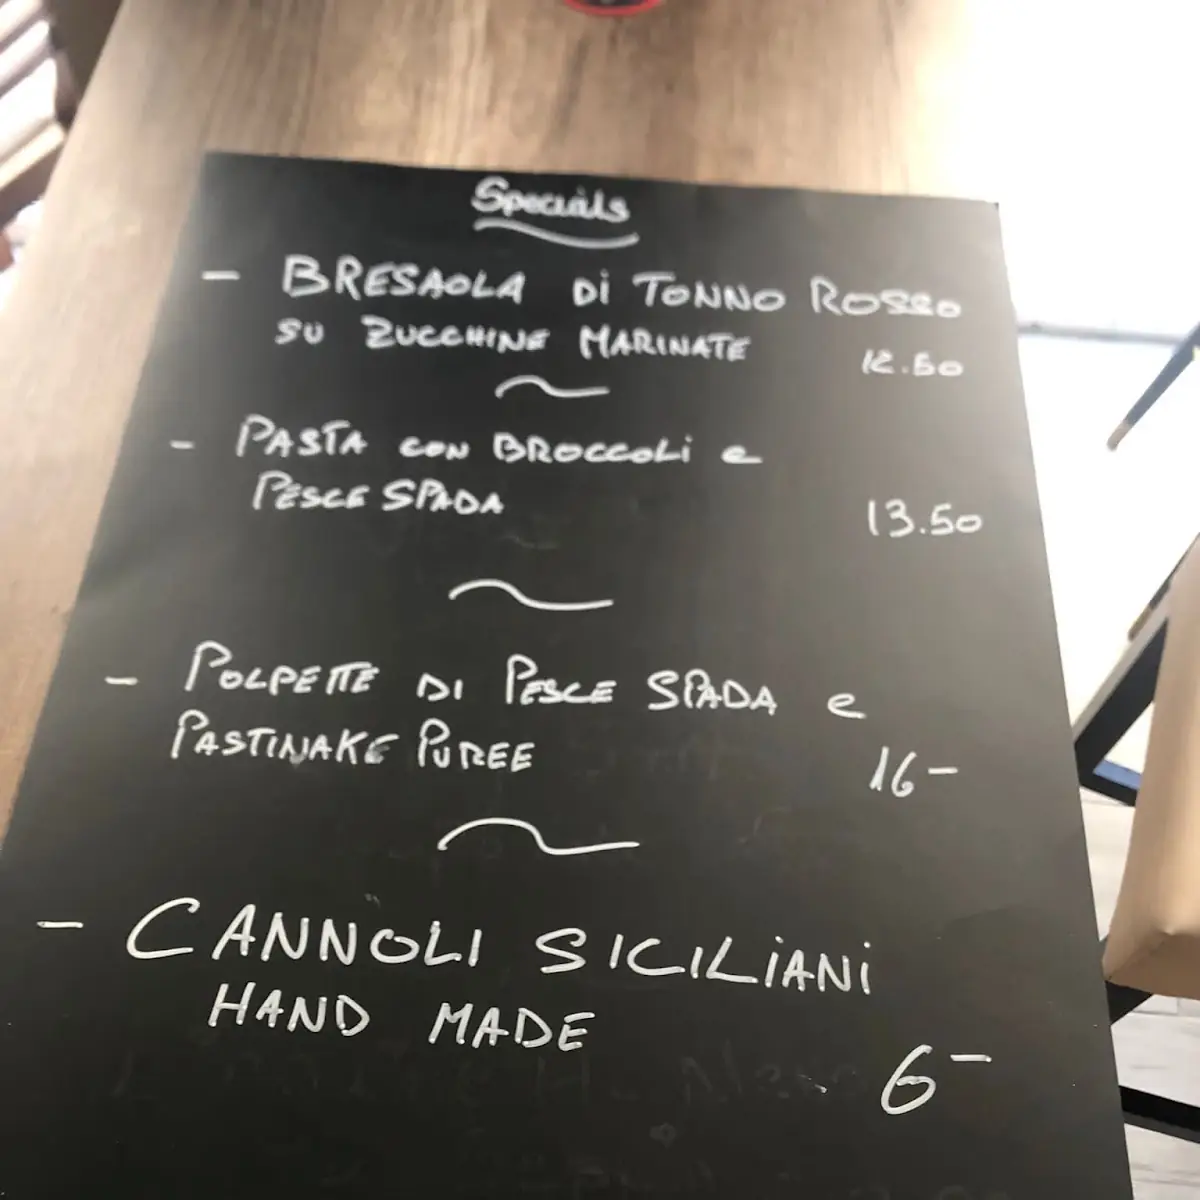 Specials
- BRESAOLA Di TONNO ROSSO
SU ZUCCHINE MARINATE 12.50
- PASTA CON BROCCOLi e
PESCE SPADA 13.50
- POLPETTE DI PESCE SPADA e
PASTINAKE PUREE 16-
- CANNOLI SICILIANi
HAND MADE 6-